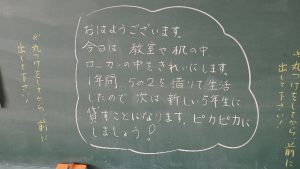 おはようございます。
今日は 教室や机の中
ロッカーの中をきれいにします。
1年間、5の2を借りて生活
したので 次は 新しい5年生に
貸すことになります。ピカピカに
しましょう!
※丸つけをしてから、前に
出して下さい!
※丸つけをしてから、前に
出して下さい!